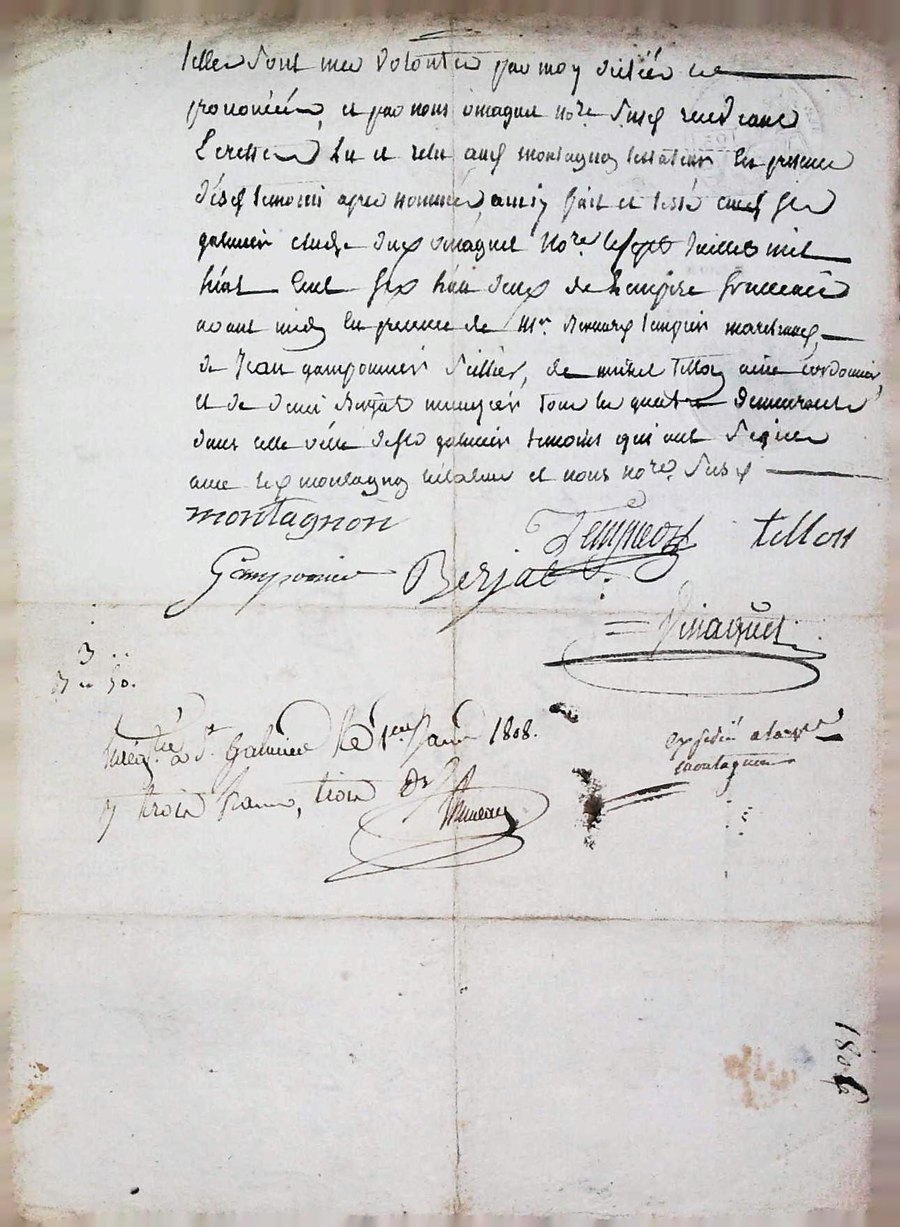 telles sont mes volontés par moy dictées et
prononcées, et par nous vinaguet no.re susd recevant
Lecrettes Lu et relu aud montagnon testateur En presence
desd temoins apres nommés ainsy fait et testé aud st
galmier etude dud vinaguet No.re le sept Juillet mil
huit Cent six L'an deux de L'empire francais
avant midy En presence de Mr. Bernard marchand,
de Jean gamponnier sellier, de michel tillon ainé cordonnier,
et de denis Berjat menuzier tous les quatre demeurants
dans cette ville de st galmier temoins qui ont signé
avec led montagnon testateur et nous no.re susd
montagnon
tillon
Gamponier Berjat
Vinaguet
3 ..
50.
à St. Galmier Le 1er Janv 1808.
trois francs, trois
expedié a
montagnon
180